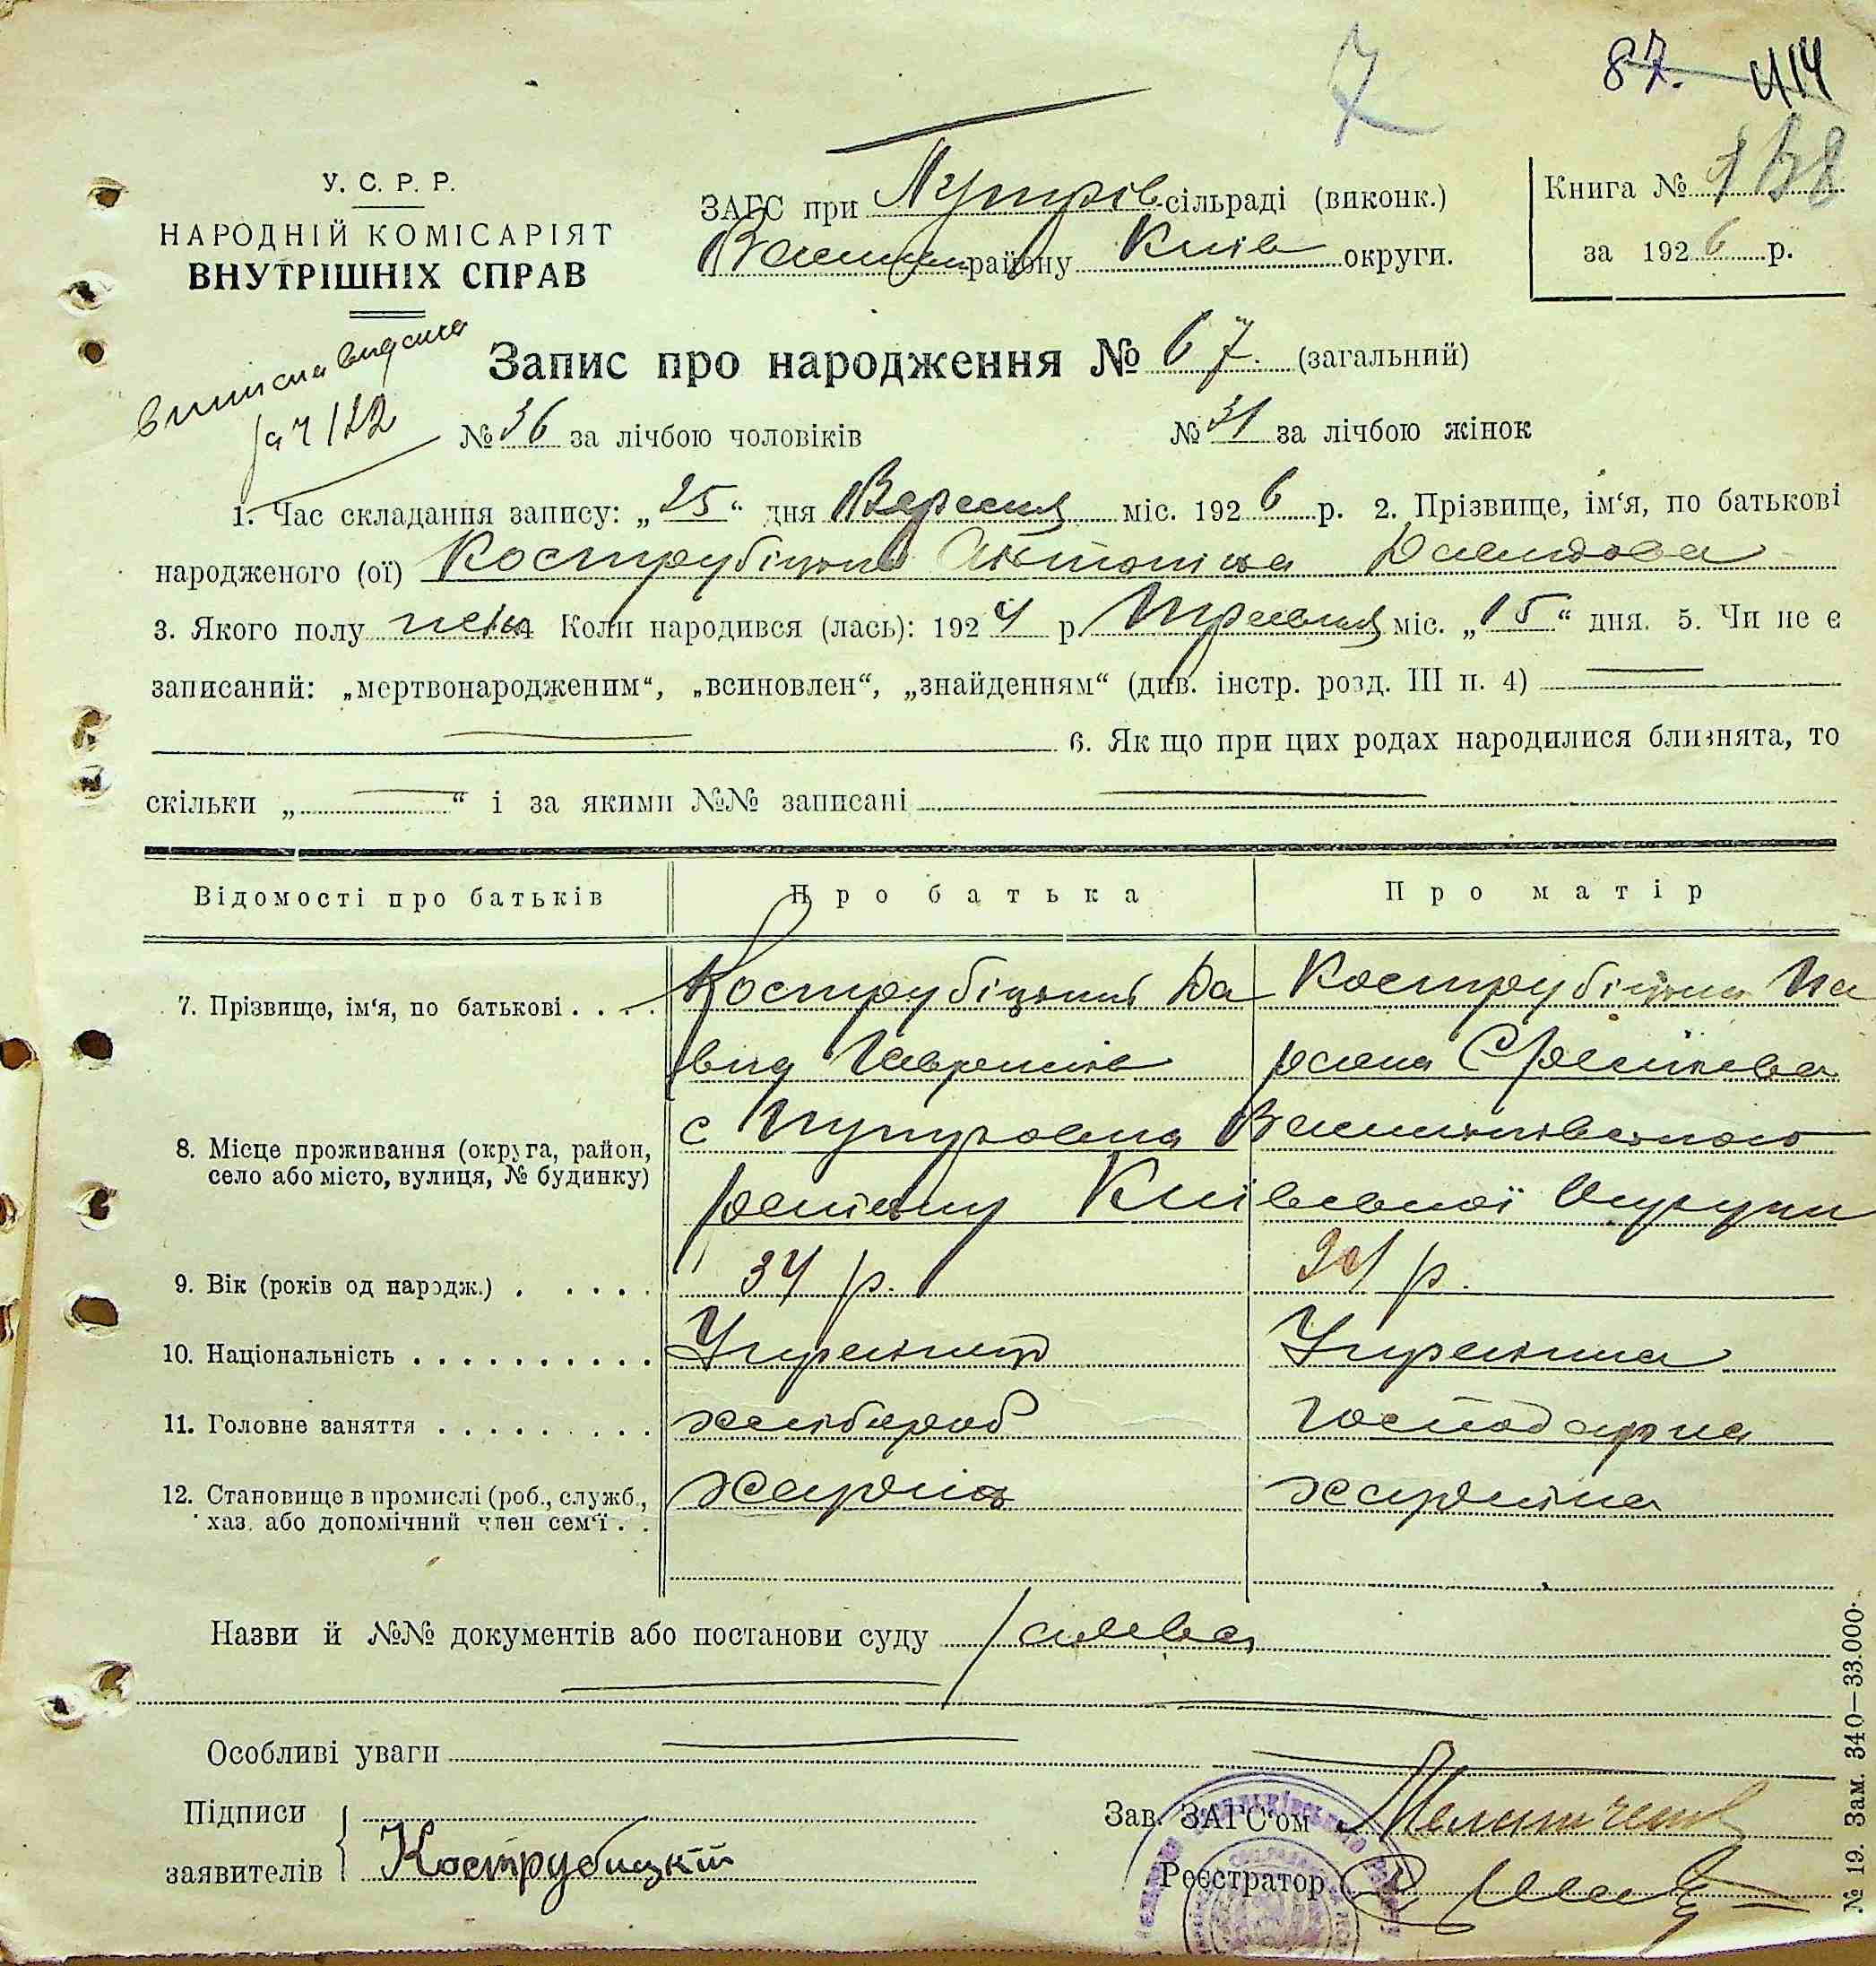 7
87. 414
У. С. Р. Р.
НАРОДНІЙ КОМІСАРІЯТ
ВНУТРІШНІХ СПРАВ
ЗАГС при Путрів сільраді (виконк.)
району Київ округи.
Книга №
за 1926 р.
Запис про народження № 67. (загальний)
видана
№ 36 за лічбою чоловіків № 31 за лічбою жінок
1. Час складання запису: „25“ дня Вересня міс. 1926 р. 2. Прізвище, ім‘я, по батькові
народженого (ої) Кострубіцька Антоніна Давидова
3. Якого полу жін 4 Коли народився (лась): 1924 р. Травня міс. „15“ дня. 5. Чи не є
записаний: „мертвонародженим“, „всиновлен“, „знайденням“ (див. інстр. розд. III п. 4)
6. Як що при цих родах народилися близнята, то
скільки „ “ і за якими №№ записані
Відомості про батьків Про батька Про матір
7. Прізвище, ім‘я, по батькові . . . . Кострубіцький Да Кострубіцька
вид
8. Місце проживання (округа, район, с Путровка Васильківського
село або місто, вулиця, № будинку) району Київської Округи
9. Вік (років од народж.) . . . . . 34 р. р.
10. Національність . . . . . . . . . . Українець Українка
11. Головне заняття . . . . . . . . . хлібороб господарка
12. Становище в промислі (роб., служб.,
хаз. або допомічний член сем‘ї . .
Назви й №№ документів або постанови суду заява
Особливі уваги
Підписи
заявителів Кострубицкій
Зав. ЗАГС‘ом
Реєстратор
№ 19. Зам. 340—33.000.